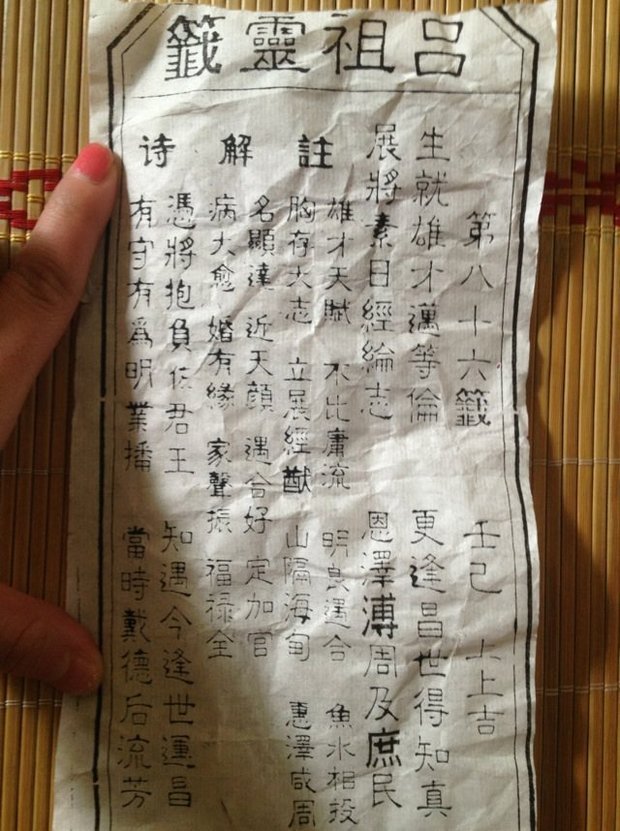 呂祖靈籤
第八十六籤 壬己 上上吉
生就雄才邁等倫 更逢昌世得知真
展將素日經綸志 恩澤溥周及庶民
註
雄才天賦 不比庸流 明良遇合 魚水相投
胸存大志 立展經猷 山隔海甸 惠澤咸周
解
名顯達 近天顔 遇合好 定加官
病大愈 婚有緣 家聲振 福祿全
诗
憑將抱負佐君王 知遇今逢世運昌
有守有爲明業播 當時戴德后流芳